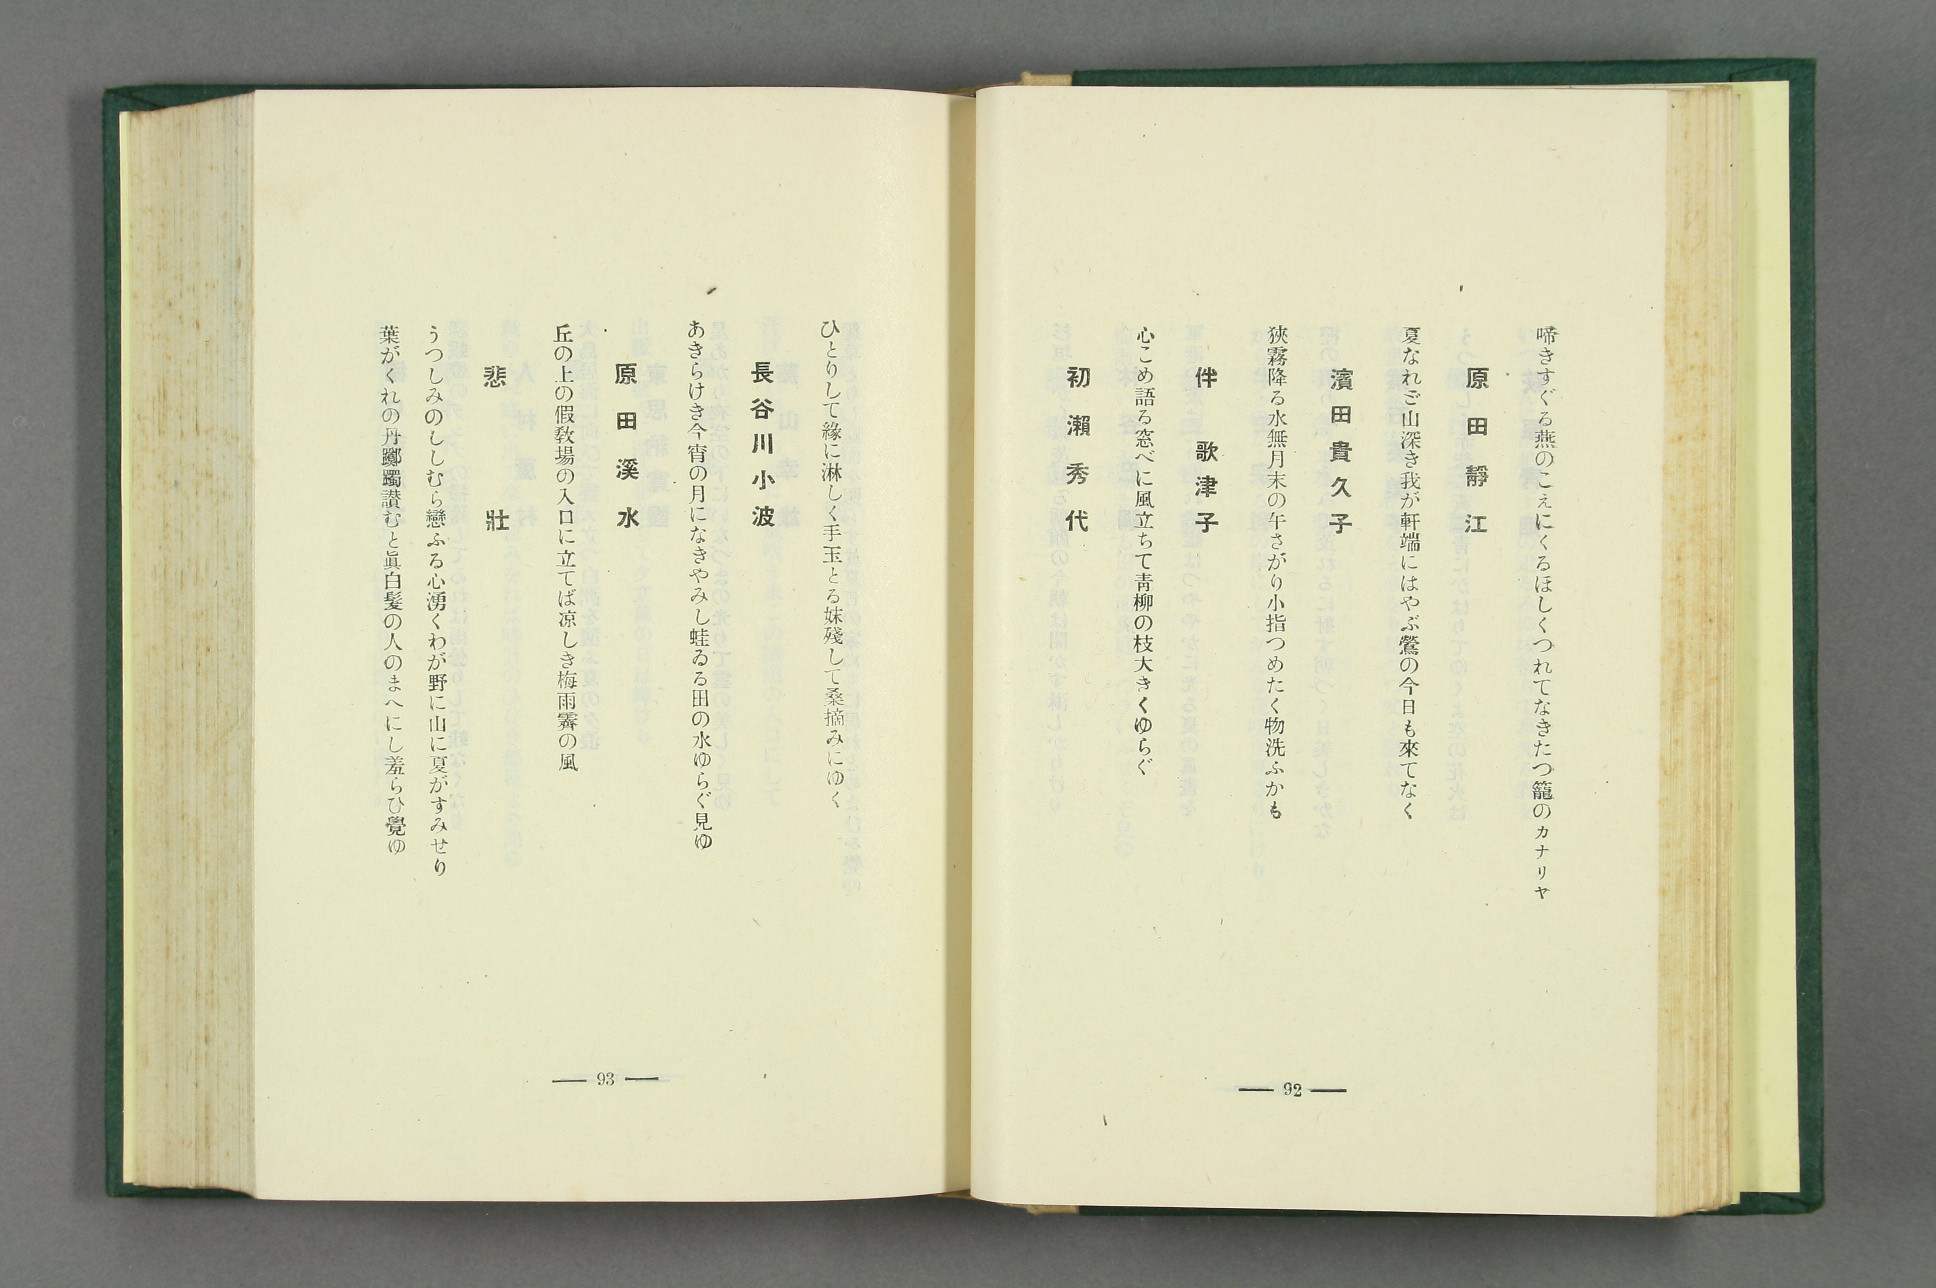 啼きすぐる燕のこえにくるほしくつれてなきたつ籠のカナリヤ
原田靜江
夏なれど山深き我が軒端にはやぶ鶯の今日も來てなく
濱田貴久子
狹霧降る水無月末の午さがり小指つめたく物洗ふかも
伴歌津子
心こめ語る窓べに風立ちて青柳の枝大きくゆらぐ
初瀨秀代
— 92 —
ひとりして緣に淋しく手玉とる妹殘して桑摘みにゆく
長谷川小波
あきらけき今宵の月になきやみし蛙ゐる田の水ゆらぐ見ゆ
原田溪水
丘の上の假敎場の入口に立てば凉しき梅雨霽の風
悲壯
うつしみのししむら戀ふる心湧くわが野に山に夏がすみせり
葉がくれの丹躑躅讃むと眞白髪の人のまへにし羞らひ覺ゆ
— 93 —